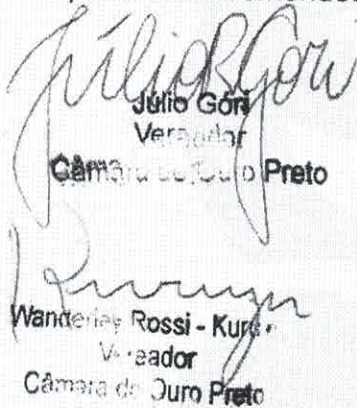 Júlio Gori
Vereador
Câmara de Ouro Preto
Wanderley Rossi - Kuruzu
Vereador
Câmara de Ouro Preto